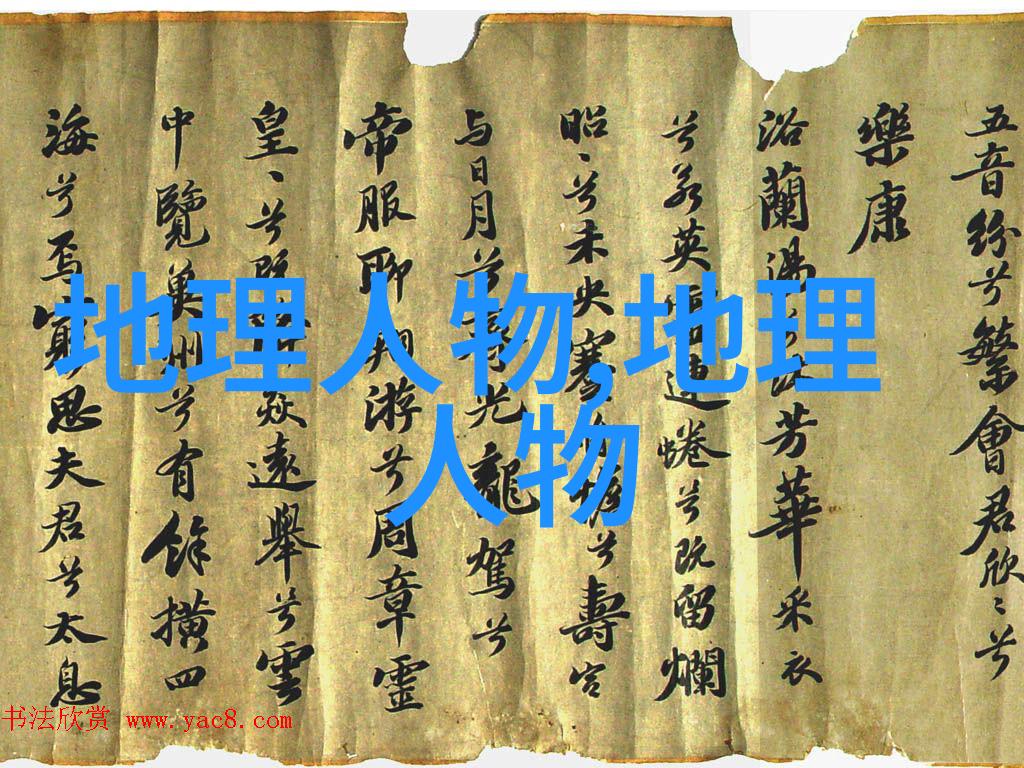 五音紛兮繁會君欣〻兮
樂康
浴蘭湯兮沐芳華采衣
兮若英靈連蜷兮既留爛
昭〻兮未央蹇將憺兮壽宮
与日月兮齊光龍駕兮
帝服聊翱游兮周章靈
皇〻兮既降猋遠舉兮雲
中覽冀州兮有餘橫四
海兮焉窮思夫君兮太息
地理人物,地理
人物
书法欣赏 www.yac8.com